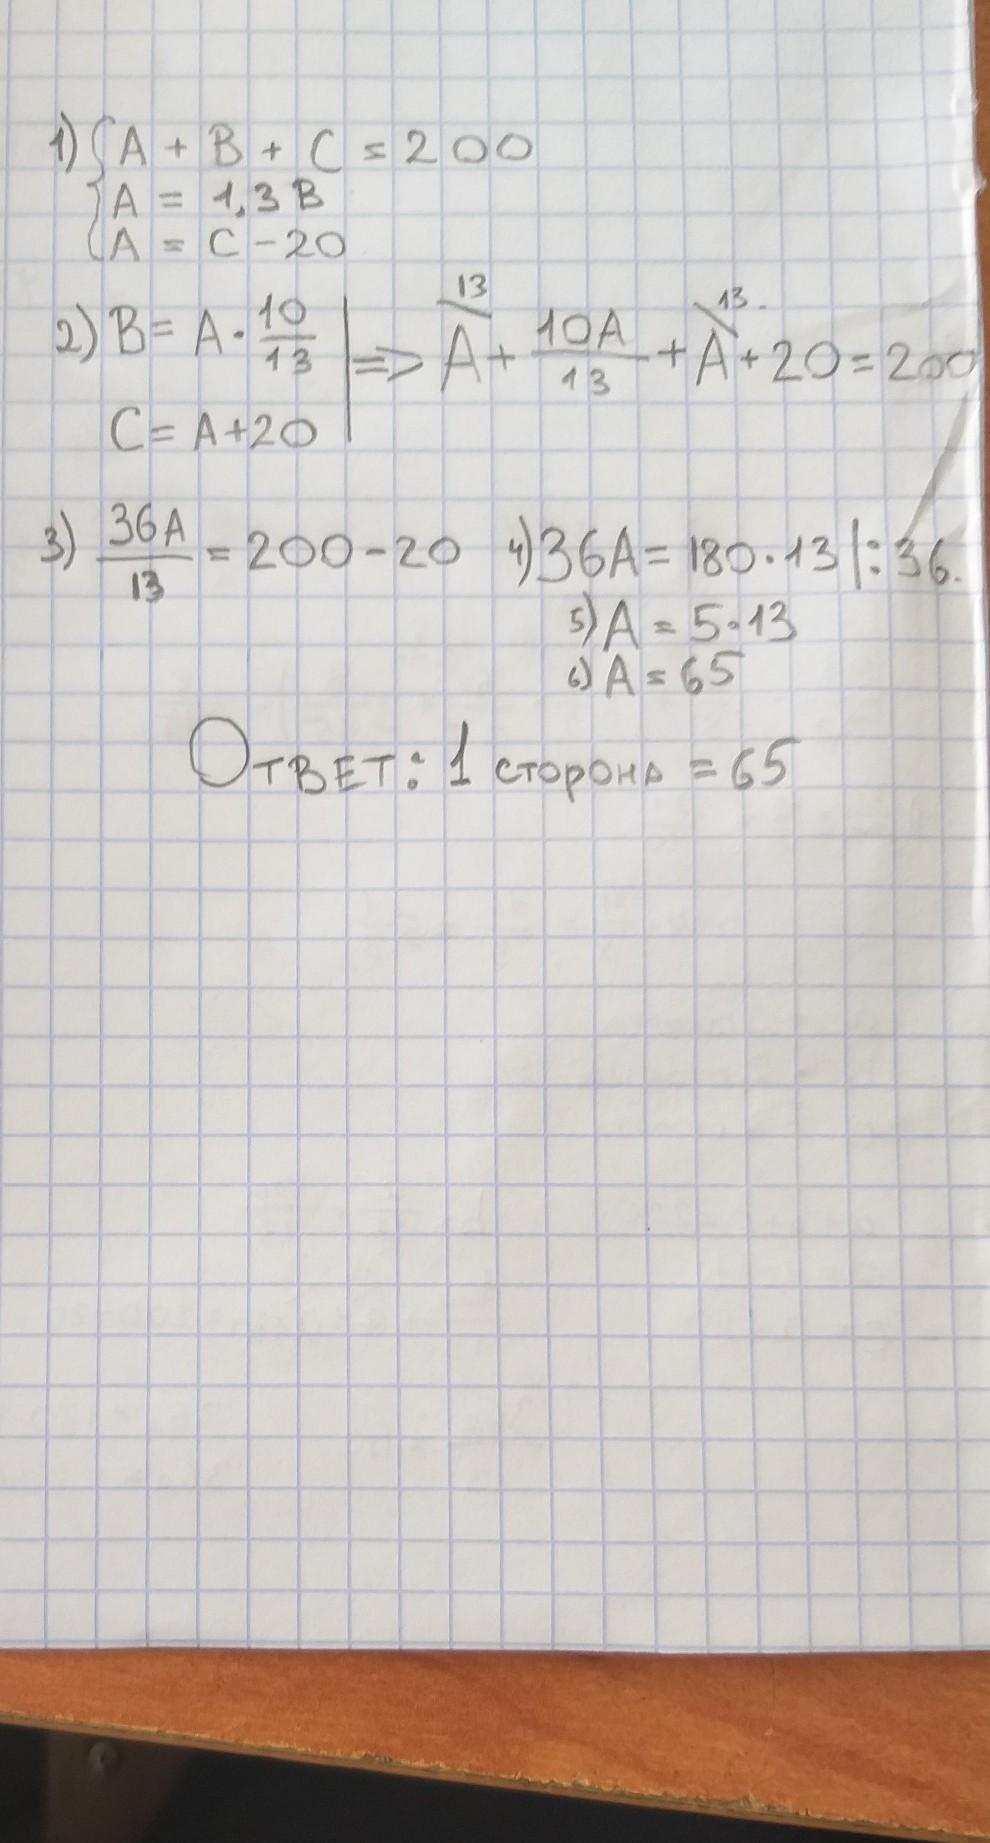 1) { A + B + C = 200
A = 1,3 B
A = C - 20
2) B = A · 10/13 | => A\13 + 10A/13 + A\13 + 20 = 200
C = A + 20
3) 36A/13 = 200 - 20 4) 36A = 180 · 13 |: 36.
5) A = 5 · 13
6) A = 65
ОТВЕТ: 1 сторона = 65